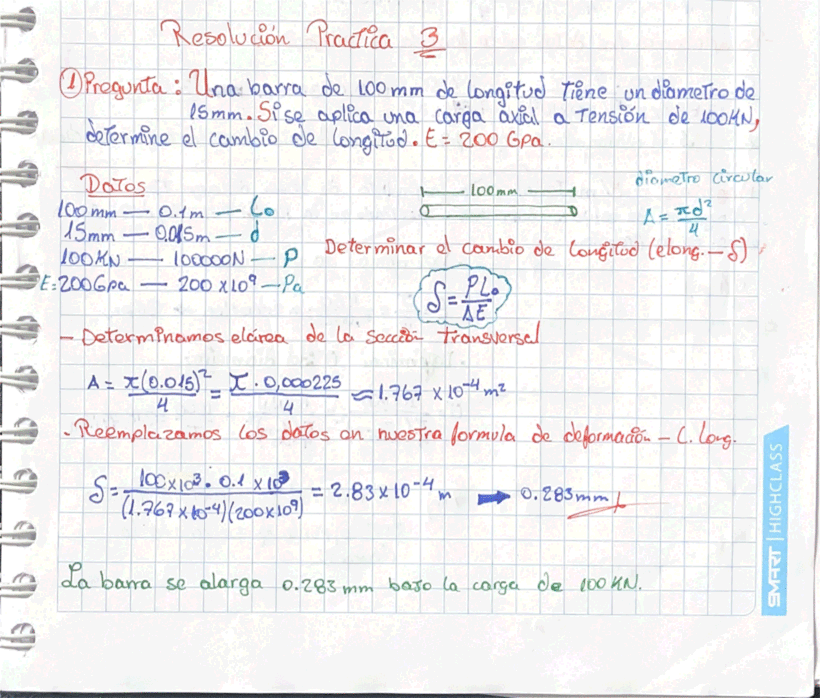 Resolución Practica 3
① Pregunta: Una barra de 100mm de longitud tiene un diametro de
15mm. Si se aplica una carga axial a tensión de 100KN,
determine el cambio de longitud. E = 200 Gpa.
Datos
100mm — 0.1m — Lo
15mm — 0.015m — d
100KN — 100000N — P
E=200Gpa — 200 x10⁹ — Pa
100mm
diametro circular
A = πd²/4
Determinar el cambio de longitud (elong. — δ)
δ = PLo/AE
- Determinamos el área de la sección transversal
A = π(0.015)²/4 = π · 0,000225/4 ≈ 1.767 x 10⁻⁴ m²
- Reemplazamos los datos en nuestra formula de deformación — C. Long.
δ = 100x10³ · 0.1 x10³/(1.767 x 10⁻⁴)(200x10⁹) = 2.83 x 10⁻⁴ m ➡ 0.283mm
La barra se alarga 0.283 mm bajo la carga de 100 KN.
SMART | HIGHCLASS